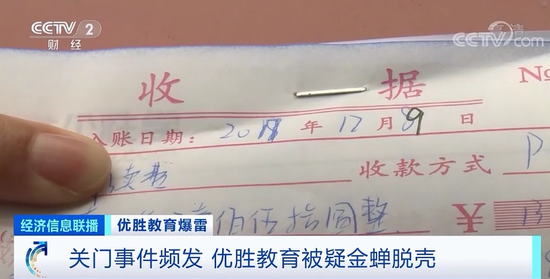 CCTV 2
财经
央视网
CCTV.com
收 据
No
入账日期：2018 年 12 月 9 日
收款方式 P
佰伍拾圆整
¥ 13
经济信息联播 优胜教育爆雷
关门事件频发 优胜教育被疑金蝉脱壳